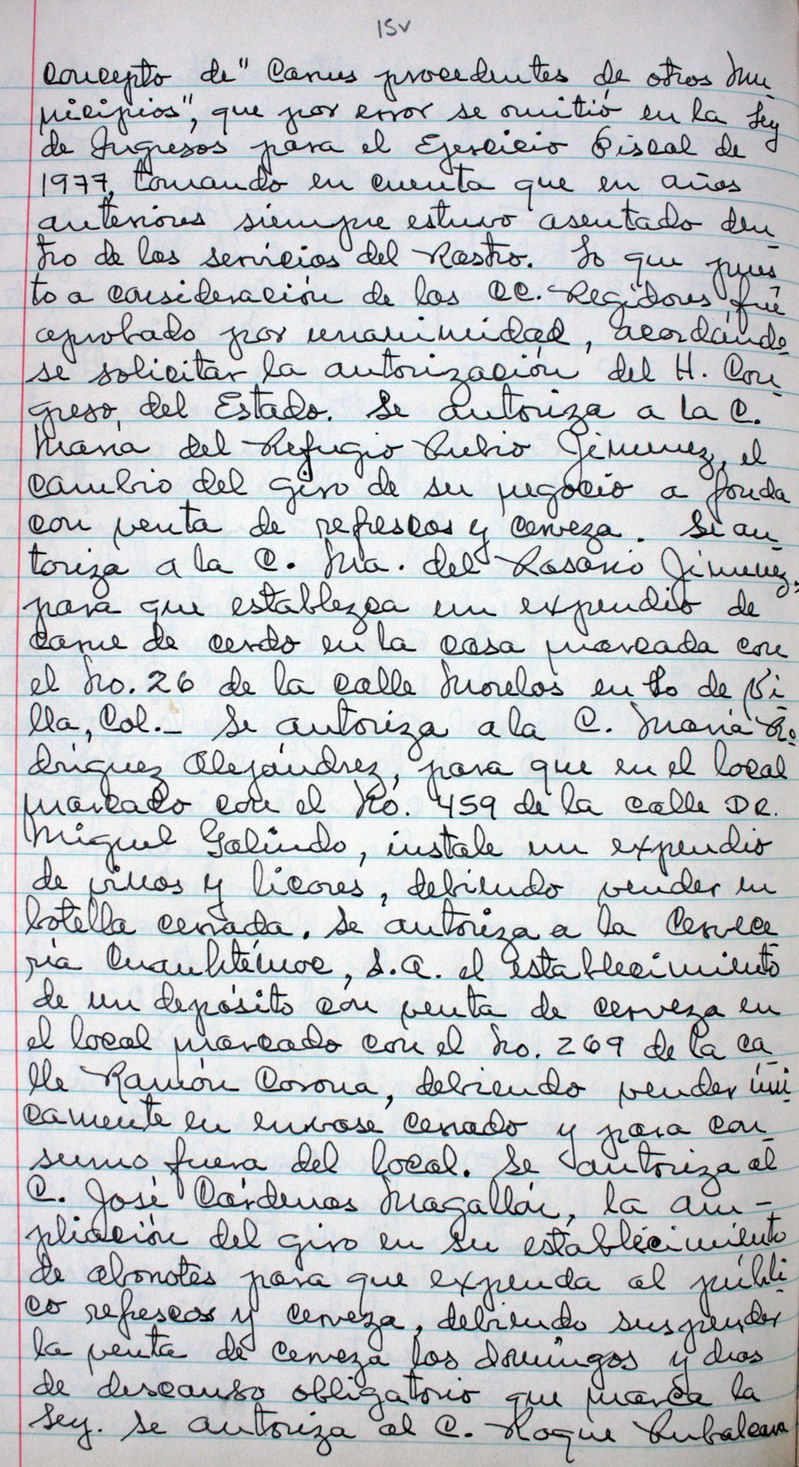 15v
concepto de "Carnes procedentes de otros Mu
nicipios", que por error se omitió en la Ley
de Ingresos para el Ejercicio Fiscal de
1977, tomando en cuenta que en años
anteriores siempre estuvo asentado den
tro de los servicios del Rastro. Lo que pues
to a consideración de los CC. Regidores fué
aprobado por unanimidad, acordándo
se solicitar la autorización del H. Con
greso del Estado. Se autoriza a la C.
María del Refugio Rubio Jimenez, el
cambio del giro de su negocio a fonda
con venta de refrescos y cerveza. Se au
toriza a la C. Ma. del Rosario Jimenez,
para que establezca un expendio de
carne de cerdo en la casa marcada con
el No. 26 de la calle Morelos en Lo de Vi
lla, Col._ Se autoriza a la C. María Ro
dríguez Alejándrez, para que en el local
marcado con el No. 459 de la calle Dr.
Miguel Galindo, instale un expendio
de vinos y licores, debiendo vender en
botella cerrada. Se autoriza a la Cervece
ría Cuauhtémoc, S.A. el establecimiento
de un depósito con venta de cerveza en
el local marcado con el No. 269 de la ca
lle Ramón Corona, debiendo vender úni
camente en envase cerrado y para con
sumo fuera del local. Se autoriza al
C. José Cárdenas Magallón, la am-
pliación del giro en su establecimiento
de abarrotes para que expenda al públi
co refrescos y cerveza, debiendo suspender
la venta de cerveza los domingos y días
de descanso obligatorio que marca la
Ley. Se autoriza al C. Roque Rubalcava